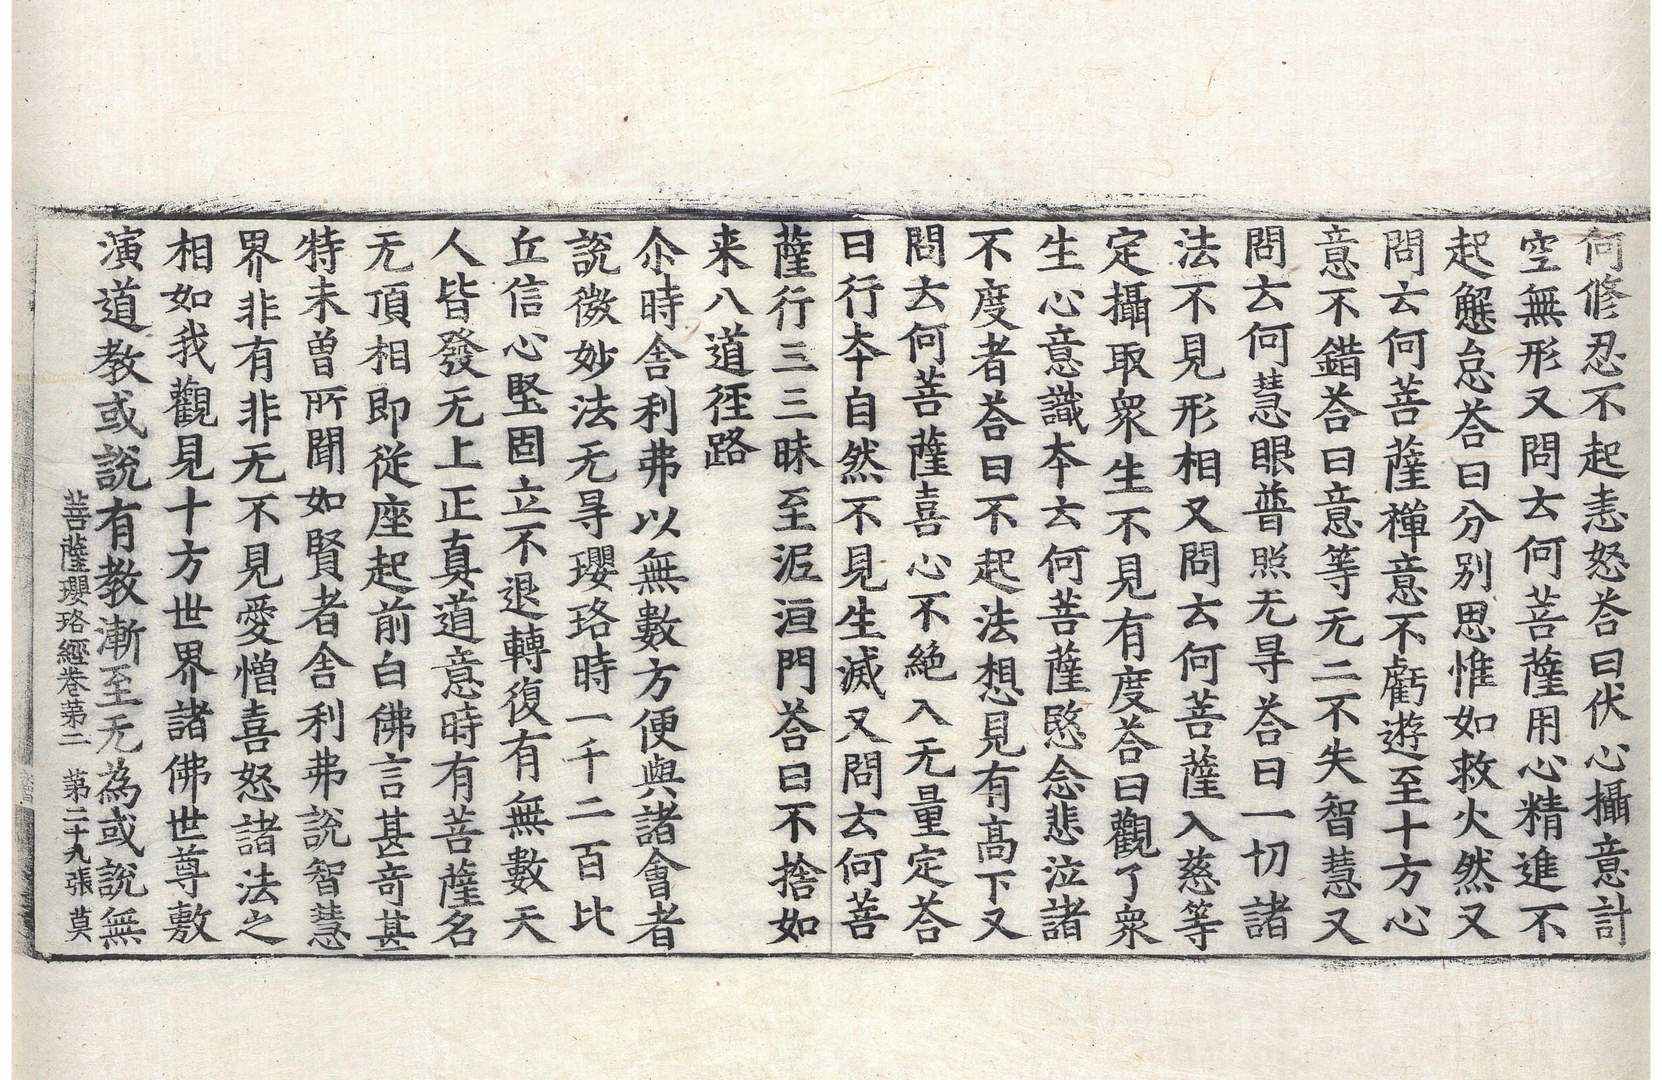 何修忍不起恚怒荅曰伏心攝意計
空無形又問云何菩薩用心精進不
起懈怠荅曰分別思惟如救火然又
問云何菩薩禪意不虧遊至十方心
意不錯荅曰意等无二不失智慧又
問云何慧眼普照无㝵荅曰一切諸
法不見形相又問云何菩薩入慈等
定攝取衆生不見有度荅曰觀了衆
生心意識夲云何菩薩愍念悲泣諸
不度者荅曰不起法想見有高下又
問云何菩薩喜心不絕入无量定荅
曰行夲自然不見生滅又問云何菩
薩行三三昧至泥洹門荅曰不捨如
来八道徑路
尒時舍利弗以無數方便與諸會者
說微妙法无㝵瓔珞時一千二百比
丘信心堅固立不退轉復有無數天
人皆發无上正真道意時有菩薩名
无頂相即從座起前白佛言甚奇甚
特未曾所聞如賢者舍利弗說智慧
界非有非无不見愛憎喜怒諸法之
相如我觀見十方世界諸佛世尊敷
演道教或說有教漸至无為或說無
菩薩瓔珞經卷苐二　苐二十九張　莫